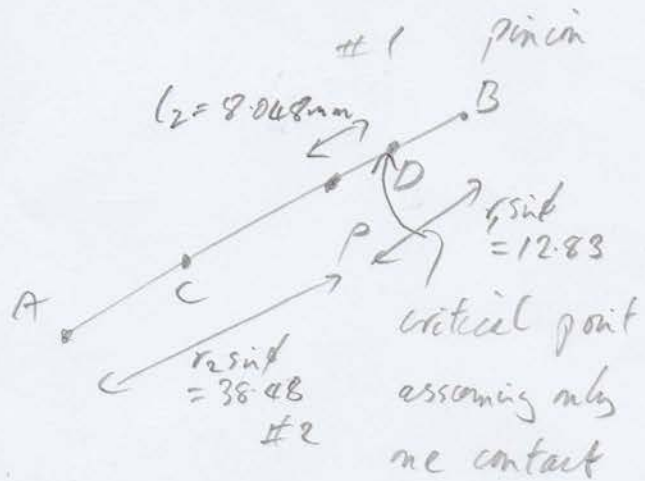 #1 pinion
l₂ = 8.048mm
B
D
P
r₁ sinϕ
= 12.83
C
A
r₂ sinϕ
= 38.48
#2
critical point
assuming only
one contact